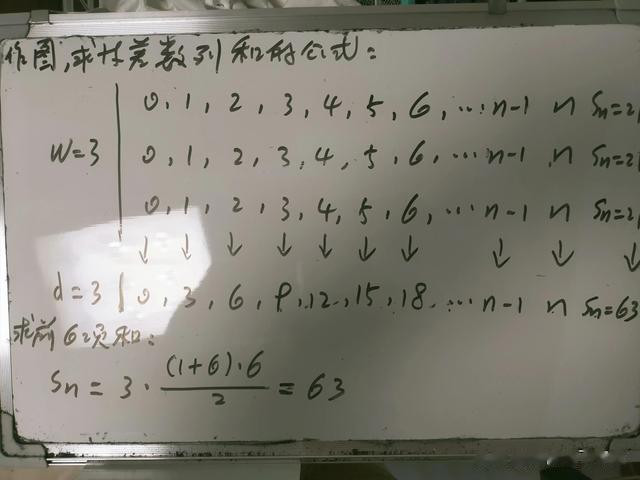 作图,求等差数列和的公式:
0, 1, 2, 3, 4, 5, 6, ...n-1 n Sn=21
W=3 0, 1, 2, 3, 4, 5, 6, ...n-1, n Sn=21
0, 1, 2, 3, 4, 5, 6, ...n-1 n Sn=21
↓ ↓ ↓ ↓ ↓ ↓ ↓ ↓ ↓ ↓
d=3 0, 3, 6, 9, 12, 15, 18, ...n-1 n Sn=63
求前6项和:
Sn = 3 · (1+6)·6 / 2 = 63